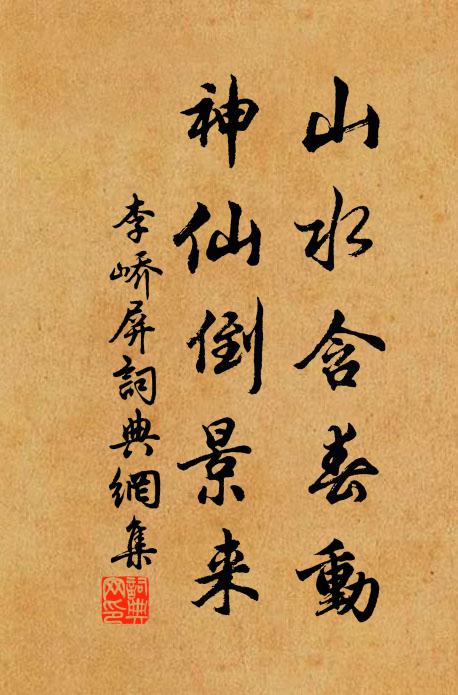 山水含春動
神仙倒景来
李嶠屏詞典網集
詞典網印